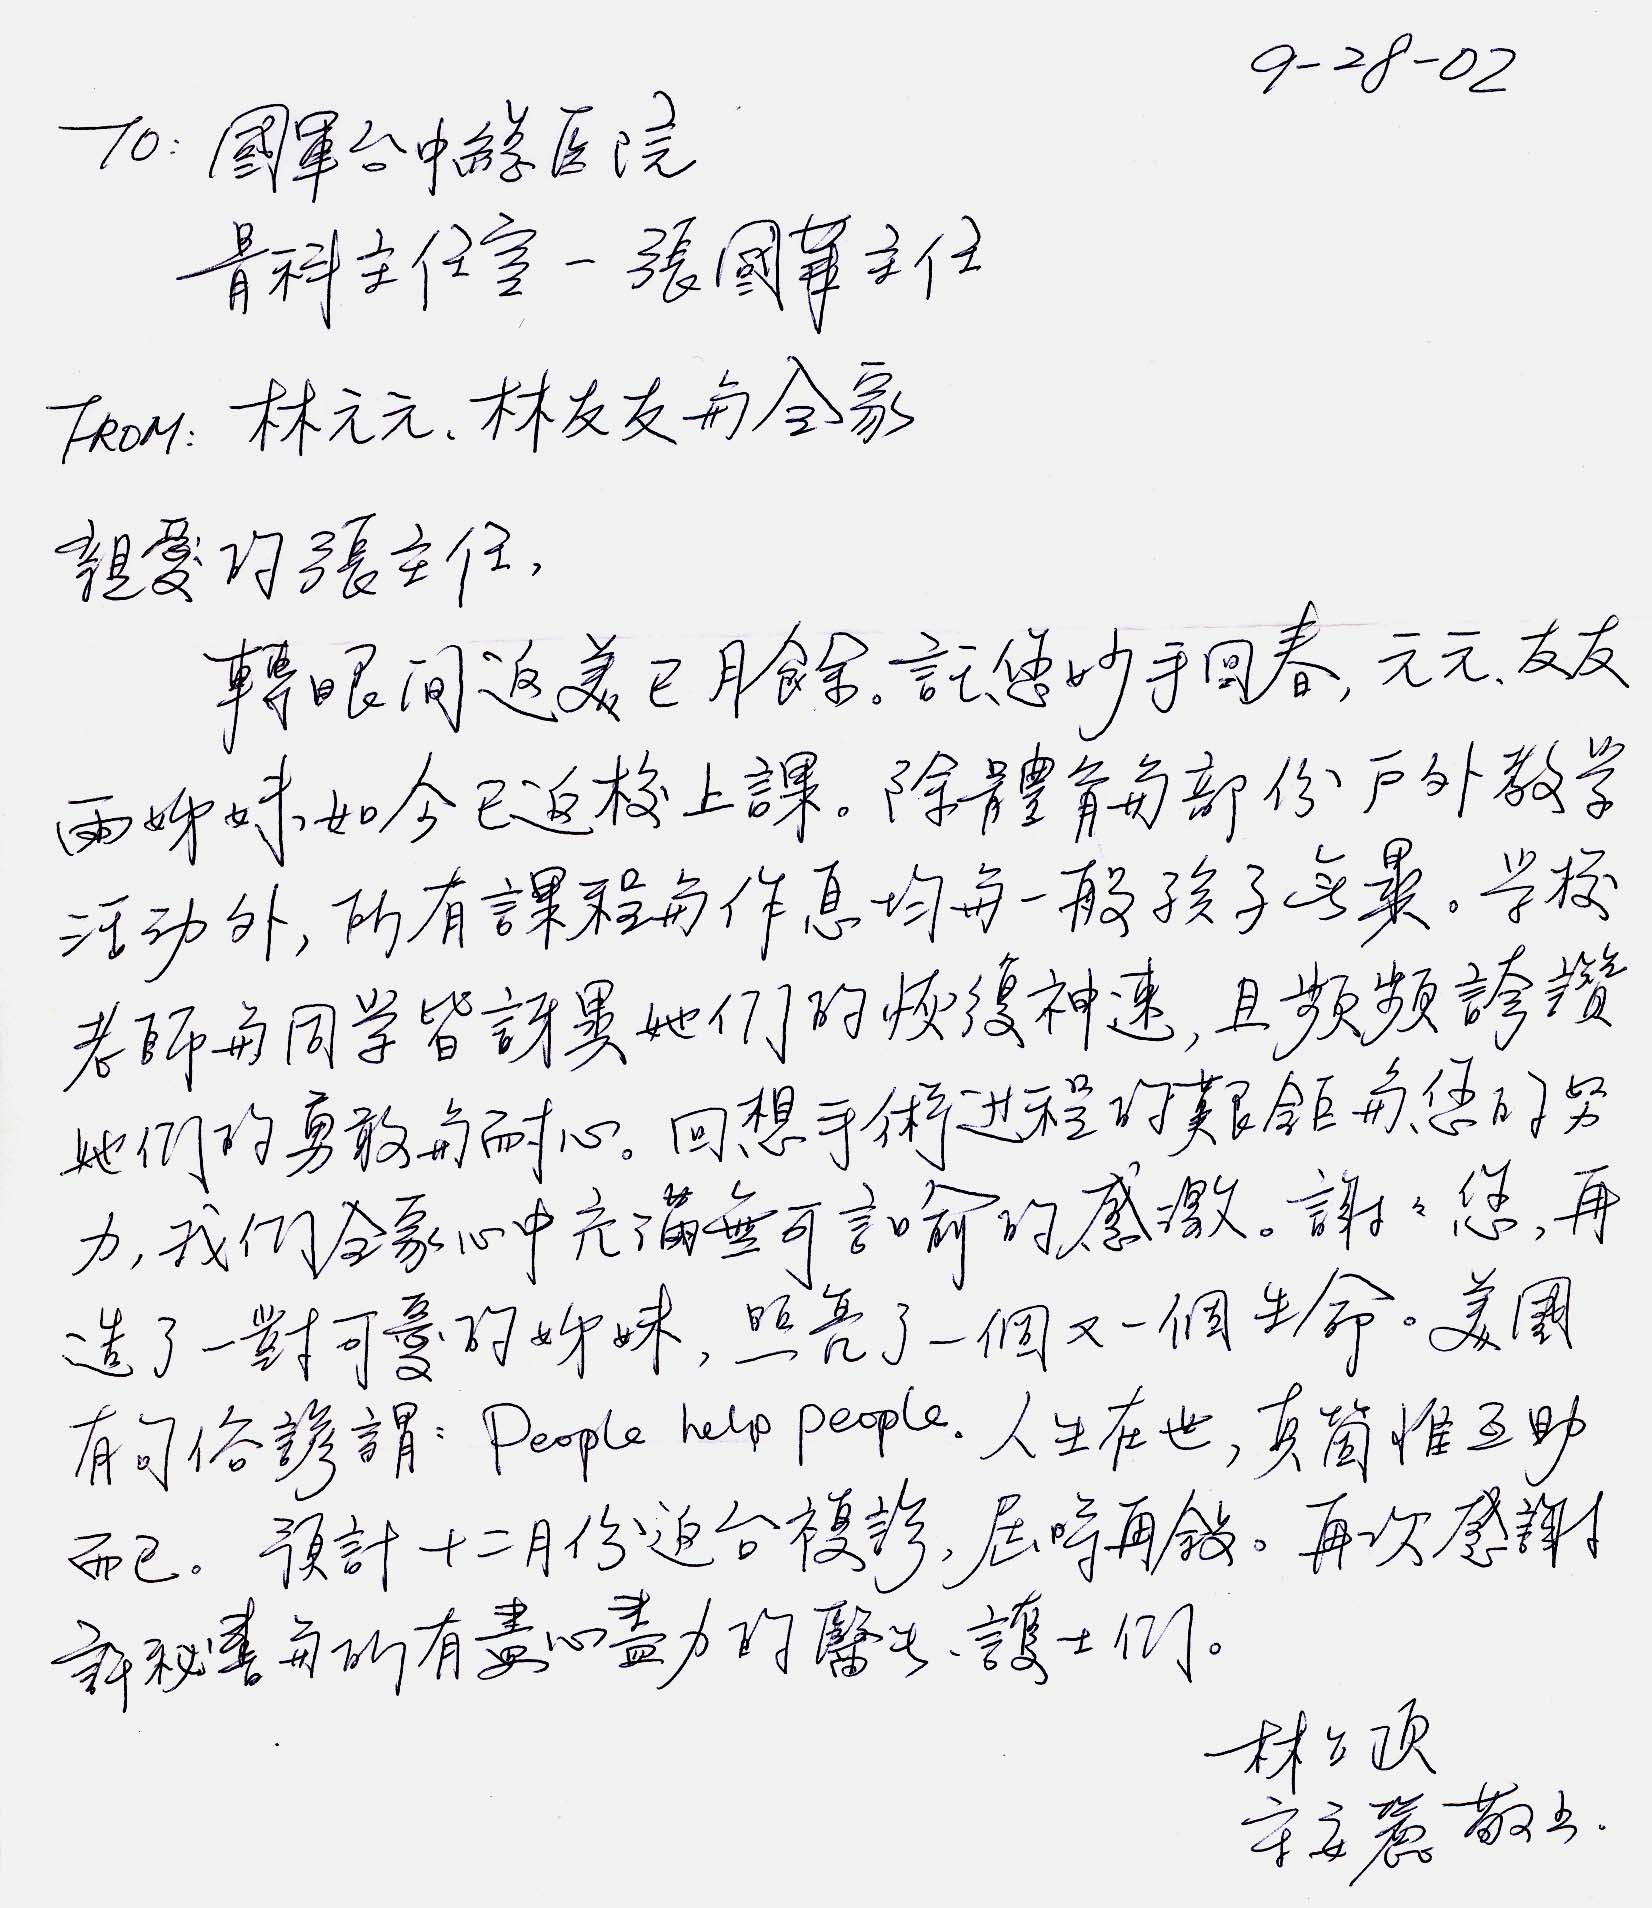 9-28-02
TO: 國軍台中總医院
骨科主任室－張國華主任
FROM: 林元元、林友友与全家
親愛的張主任,
轉眼间返美已月餘。託您妙手回春, 元元、友友
兩姊妹如今已返校上課。除體育与部份户外教学
活动外, 所有課程与作息均与一般孩子無異。学校
老師与同学皆訝異她们的恢復神速, 且頻頻誇讚
她们的勇敢与耐心。回想手術进程的艱鉅与您的努
力, 我们全家心中充滿無可言喻的感激。謝々您, 再
造了一對可愛的姊妹, 照亮了一個又一個生命。美國
有句俗諺謂: People help people. 人生在世, 真箇惟互助
而已。預計十二月份返台複診, 屆時再敘。再次感謝
許秘書与所有盡心盡力的醫生、護士们。
林公頌
敬上.